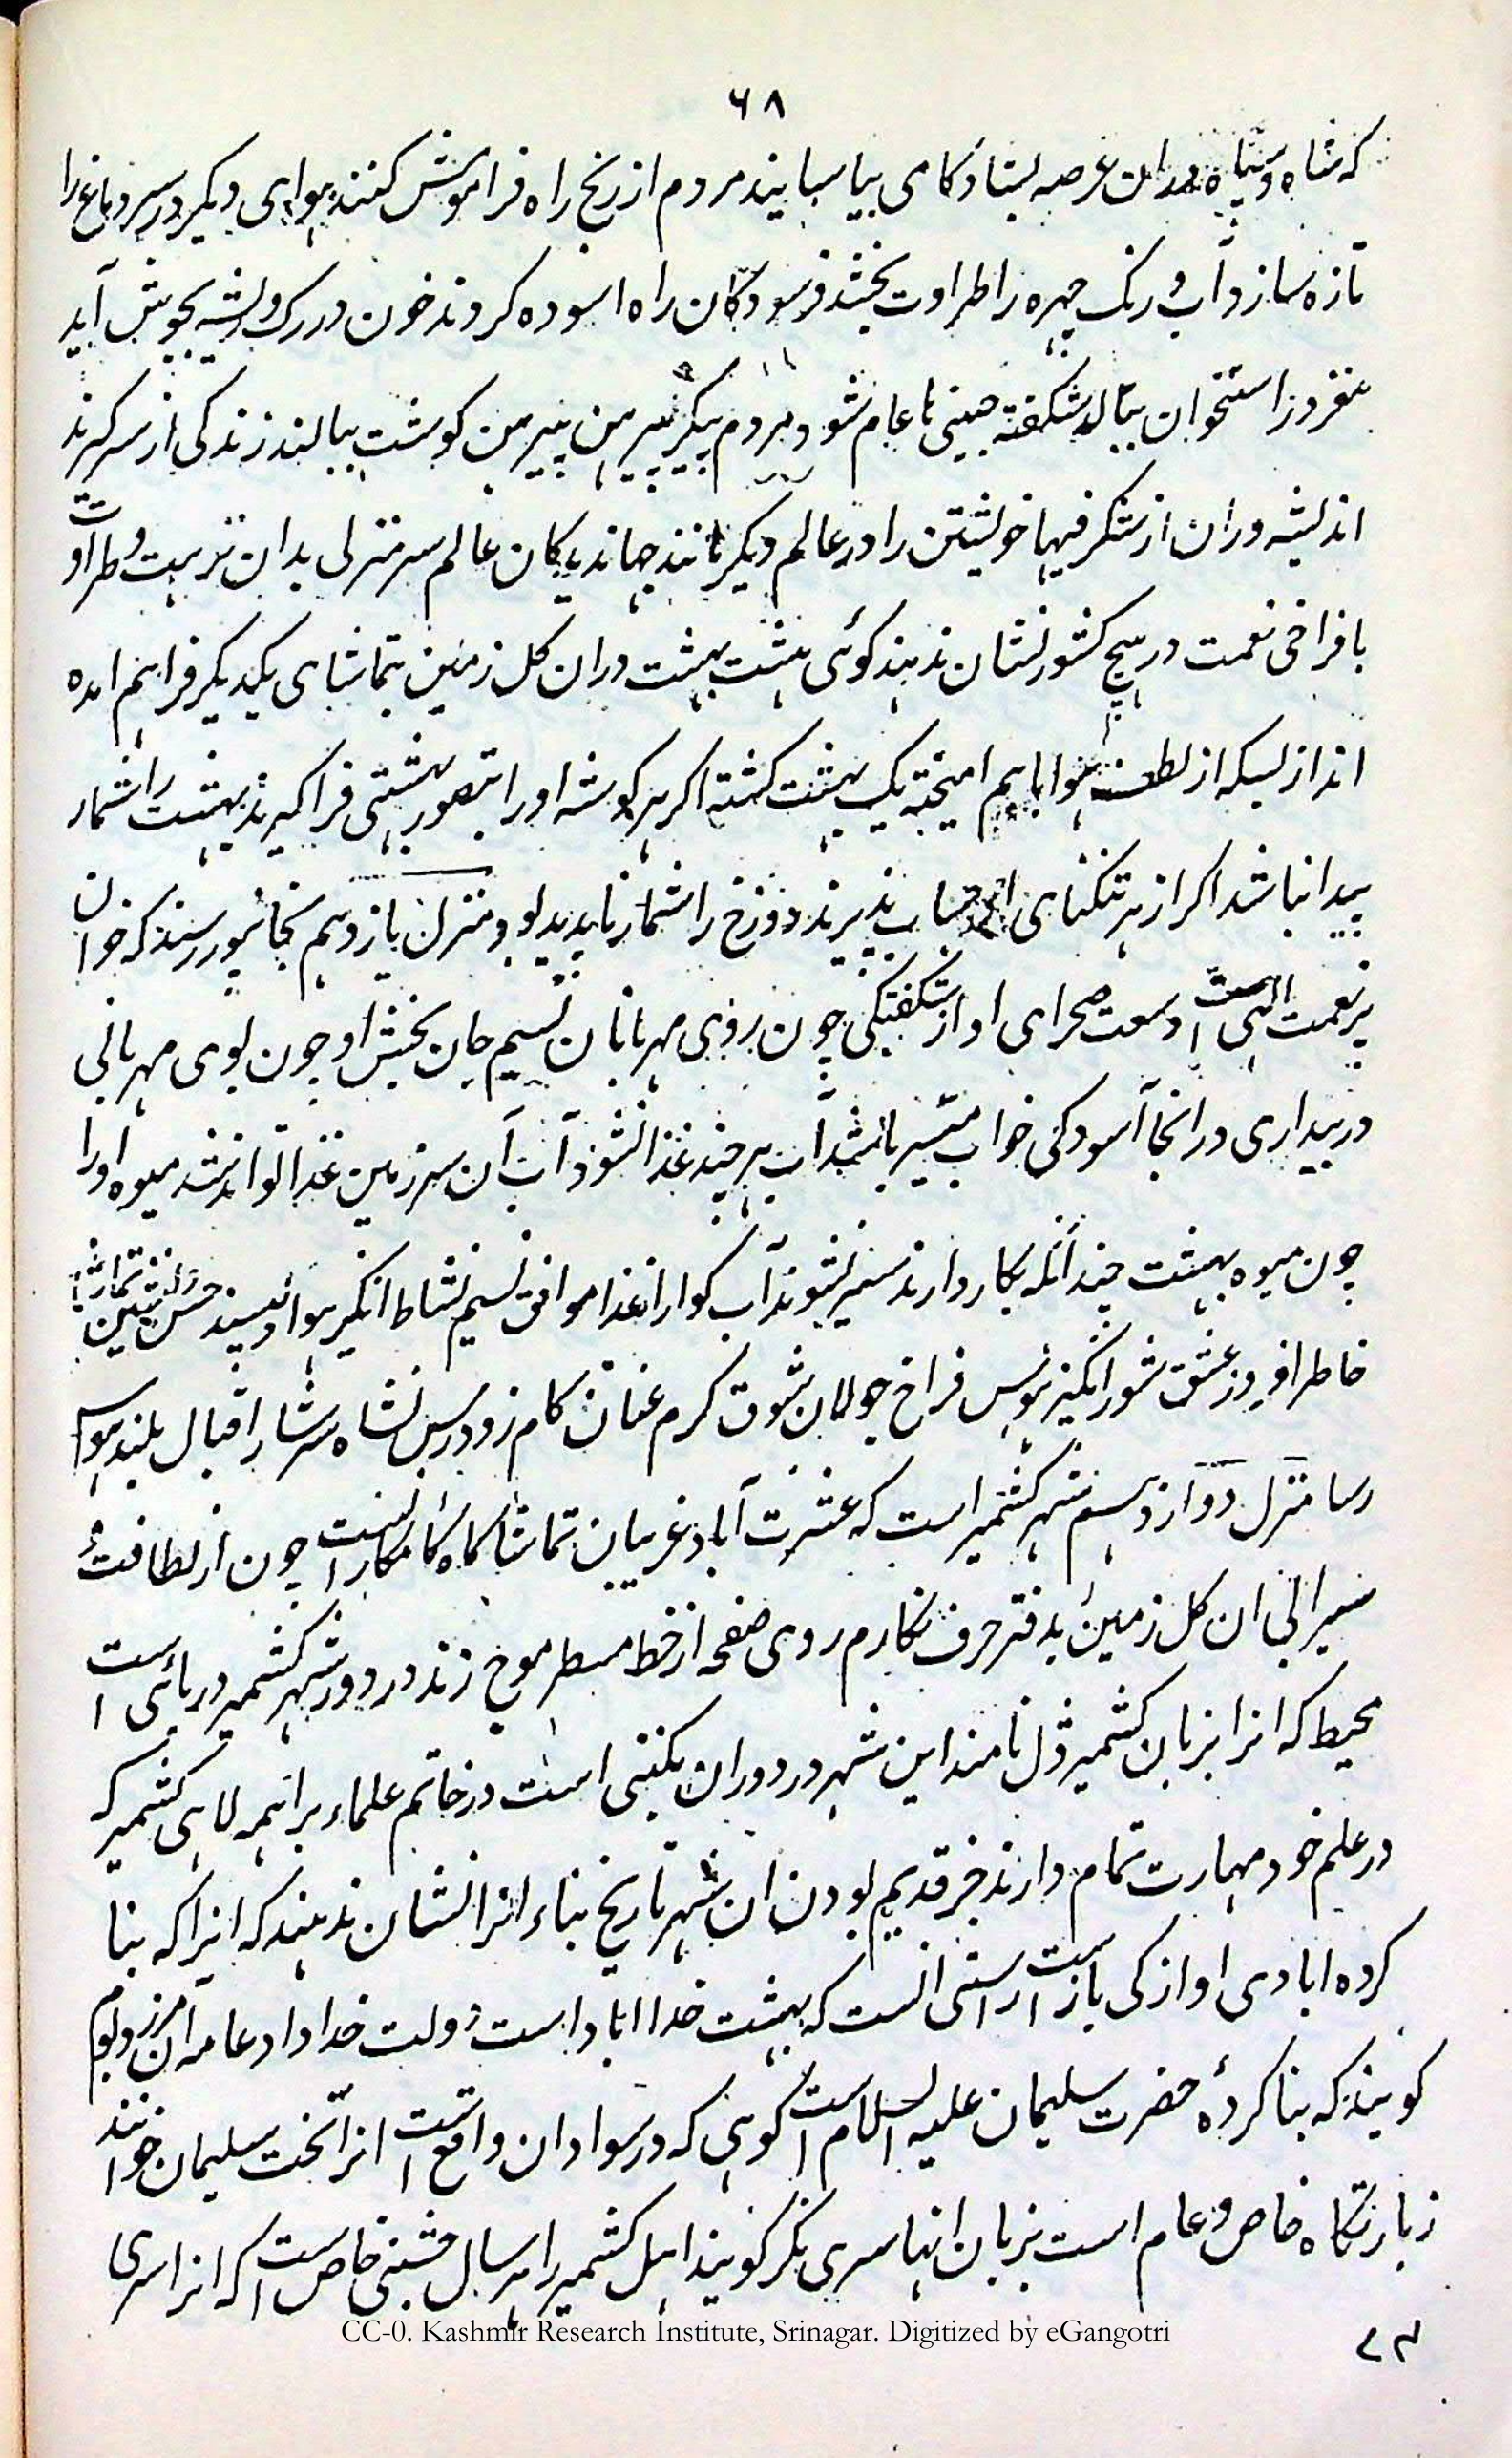 ۶۸
که شاه و سپاه دران عرصه بشادکامی بیاسایند مردم از رنج راه فراموش کنند هوای دیکر در سر دماغ را
تازه سازد آب و رنک چهره را طراوت بخشد فرسودکان راه اسوده کردند خون در رک و ریشه بجوش آید
مغز در استخوان ببالد شکفته جبینی با عام شود مردم پیکر پیرهن پیرهن کوشت ببالند زندکی از سر کیرند
اندیشه وران از شکرفیها خویشتن را در عالم دیکر دانند جهاندیدکان عالم سرمنزلی بدان نزهت و طراوت
با فراخی نعمت در هیچ کشور نشان ندهند کوئی هشت بهشت دران کل زمین بتماشای یکدیکر فراهم امده
اند از بسیکه از لطف هوا باهم امیخته یک بهشت کشته اکر هر کوشه او را بتصور بهشتی فراکیرند بهشت را شمار
پیدا نباشد اکر از هر تنکنای پذیرند دوزخ را شمار ناپدید بود منزل یازدهم بخانپور رسند که خوان
پر نعمت الهی است وسعت صحرای او از شکفتکی چون روی مهربانان نسیم جان بخش او چون بوی مهربانی
در بیداری درانجا آسودکی خواب میسر باشد آب هر چند غذا نشود آب آن سرزمین غذا تواند شد میوه او را
چون میوه بهشت چندانکه بکار دارند سیر نشوند آب کوارا غذا موافق نسیم نشاط انکیز هوا دلپسند حسن
خاطر افروز عشق شورانکیز هوس فراخ جولان شوق کرم عنان کام زودرس نشاه سرشار اقبال بلند هوا
رسا منزل دوازدهم شهر کشمیر است که عشرت آباد غریبان تماشاکاه کامکارانست چون از لطافت
سیرابی ان کل زمین بدفتر حرف نکارم روی صفحه از خط مسطر موج زند در دور شهر کشمیر دریائی است
محیط که انرا بزبان کشمیر ڈل نامند این شهر در دوران نکینی است در خاتم علماء براهمه لاهی کشمیر که
در علم خود مهارت تمام دارند خبر قدیم بودن ان شهر تاریخ بناء انرا نشان ندهند که انرا که بنا
کرده ابادی او از کی باز است راستی انست که بهشت خدا اباد است دولت خداداد عامه آن مرز و بوم
کویند که بنا کردهٔ حضرت سلیمان علیه السلام است کوهی که در سواد ان واقع است انرا تخت سلیمان خوانند
زیارتکاه خاص و عام است بزبان انها سری نکر کویند اهل کشمیر را هر سال جشنی خاص است که انرا سری
CC-0. Kashmir Research Institute, Srinagar. Digitized by eGangotri